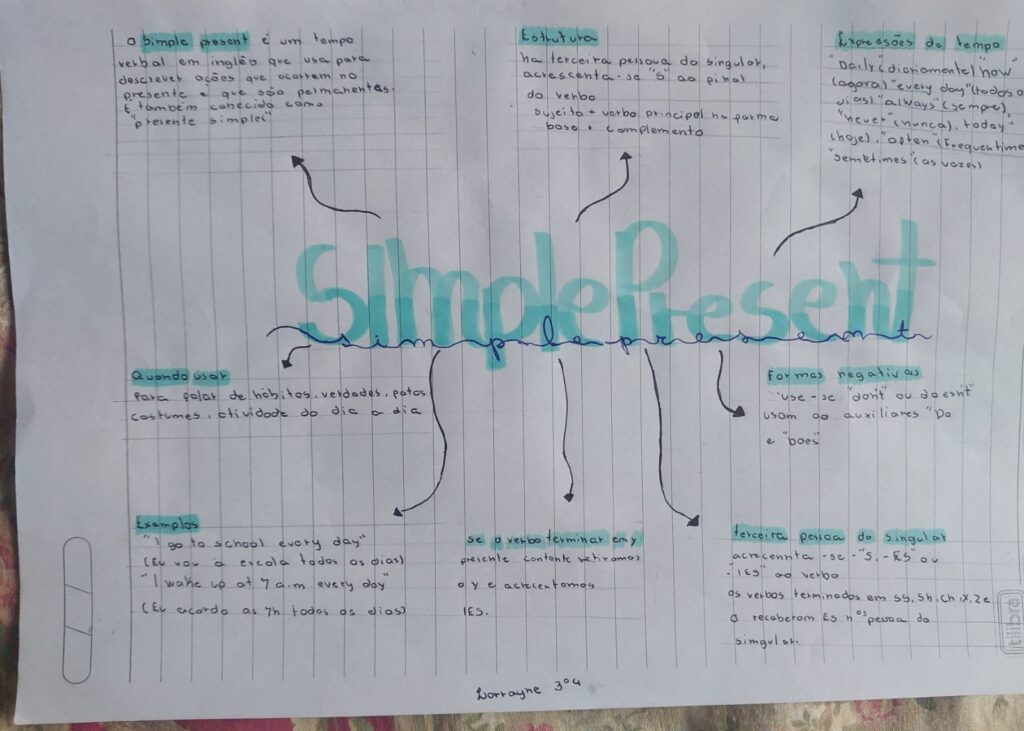 O Simple present é um tempo
verbal em inglês que usa para
descrever ações que ocorrem no
presente e que são permanentes.
E também conecido como
"presente simples"
Estrutura
na terceira pessoa do singular,
acrescenta-se "S" ao final
do verbo
sujeito + verbo principal na forma
base + complemento
Expressões de tempo
"Daily" (diariamente) "now"
(agora) "every day" (todos o
dias). "always" (sempre),
"never" (nunca), today"
(hoje), "often" (Frequentime
"semetimes" (as vozes)
SImple Present
simple present
Quando usar
Para falar de hábitos, verdades, fatos
costumes, atividade do dia a dia
Formas negativas
"use-se "don't" ou doesn't"
usam ao auxiliares "Do
e "Does"
Exemplos
"I go to school every day"
(Eu vou à escola todos os dias)
"I wake up at 7 a.m every day"
(Eu acordo as 7h todos os dias)
se o verbo terminar em y
presente contante retiramos
o y e acrecentamos
IES.
terceira pessoa do singular
acrecennta-se-"S, -ES" ou
-"IES" ao verbo
os verbos terminados em SS, Sh, Ch, X, Z e
O receberam ES nº pessoa do
simgular.
tilibra
Lorrayne 3º4